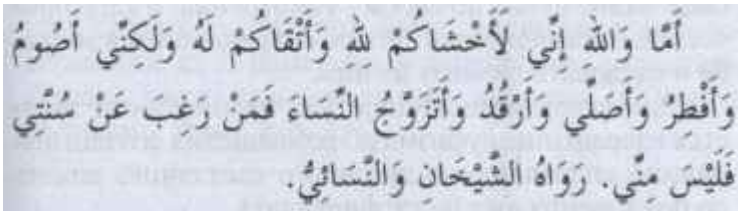 أَمَّا وَاللهِ إِنِّي لَأَخْشَاكُمْ لِلهِ وَأَتْقَاكُمْ لَهُ وَلَكِنِّي أَصُومُ
وَأُفْطِرُ وَأُصَلِّي وَأَرْقُدُ وَأَتَزَوَّجُ النِّسَاءَ فَمَنْ رَغِبَ عَنْ سُنَّتِي
فَلَيْسَ مِنِّي. رَوَاهُ الشَّيْخَانِ وَالنَّسَائِيُّ.